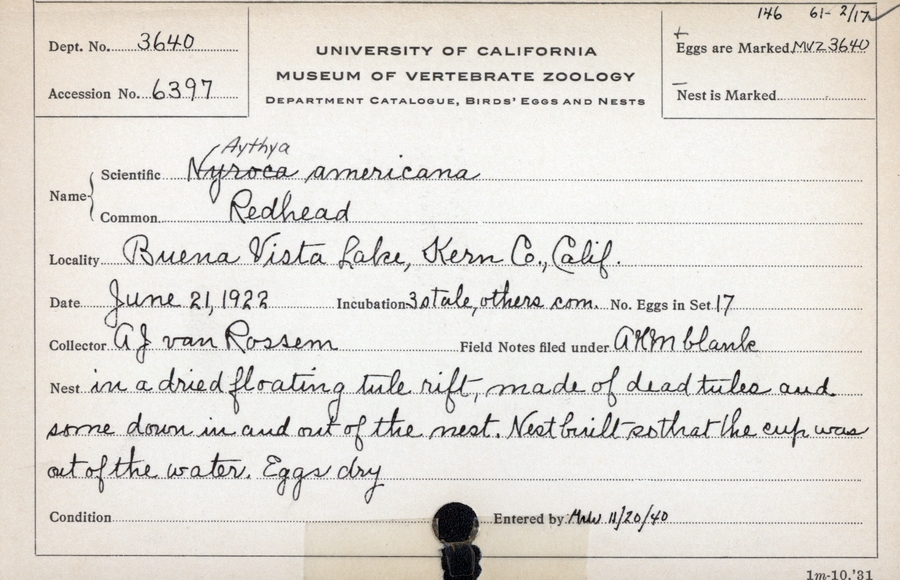 146 61- 2/17 ✓
Dept. No. 3640
UNIVERSITY OF CALIFORNIA
MUSEUM OF VERTEBRATE ZOOLOGY
DEPARTMENT CATALOGUE, BIRDS' EGGS AND NESTS
+
Eggs are Marked MVZ 3640
Accession No. 6397
–
Nest is Marked
Aythya
Name { Scientific Nyroca americana
Common Redhead
Locality Buena Vista Lake, Kern Co., Calif.
Date June 21, 1922 Incubation 3 stale, others com. No. Eggs in Set 17
Collector A J van Rossem Field Notes filed under AHM blank
Nest in a dried floating tule rift, made of dead tules and
some down in and out of the nest. Nest built so that the cup was
out of the water. Eggs dry
Condition Entered by 11/20/40
1m-10,'31